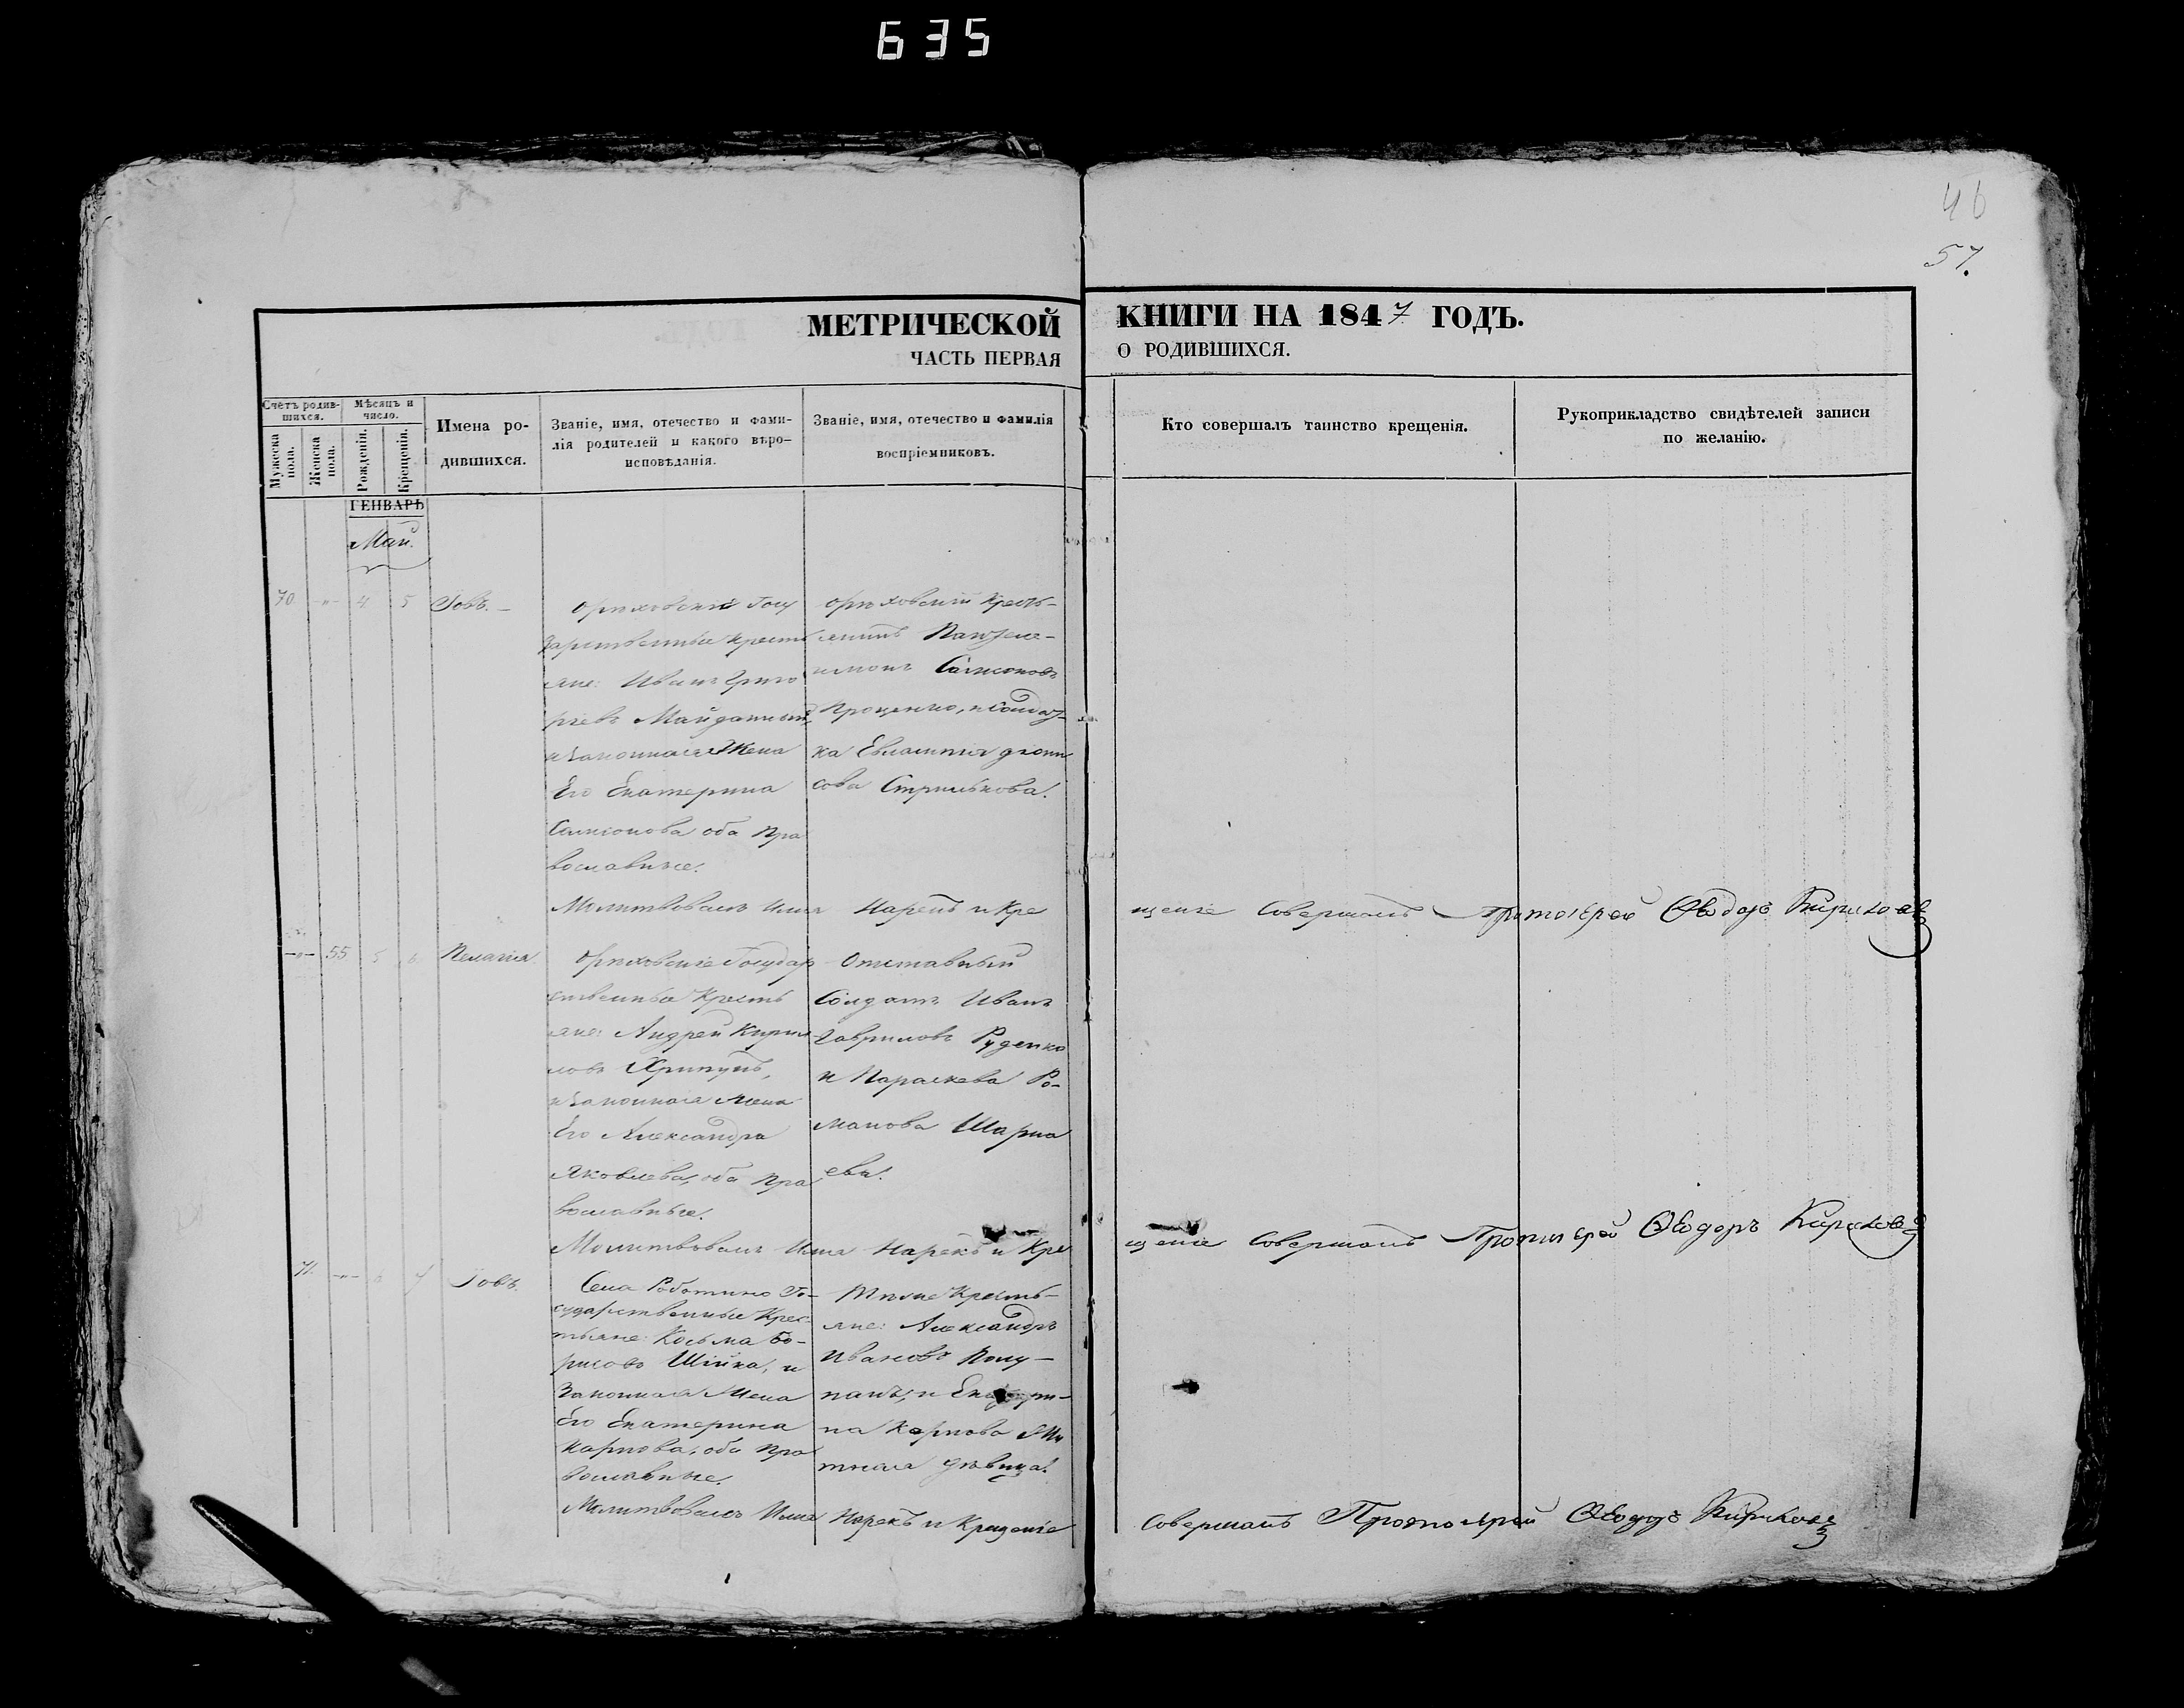 635
46
57.
МЕТРИЧЕСКОЙ КНИГИ НА 1847 ГОДЪ.
ЧАСТЬ ПЕРВАЯ О РОДИВШИХСЯ.
Счетъ родив-
шихся.
Мужеска
пола.
Женска
пола.
Мѣсяцъ и
число.
Рожденія.
Крещенія.
Имена ро-
дившихся.
Званіе, имя, отечество и фами-
лія родителей и какого вѣро-
исповѣданія.
Званіе, имя, отечество и фамилія
воспріемниковъ.
Кто совершалъ таинство крещенія.
Рукоприкладство свидѣтелей записи
по желанію.
ГЕНВАРЬ
Май.
70. -„- 4 5 Іовъ.
Орѣховскіе Госу
дарственные кресть
яне: Иванъ Григо
рьевъ Майданный,
и законная Жена
Его Екатерина
Самсонова оба пра
вославные.
Орѣховскій Кресть-
янинъ Пантеле-
имонъ Самсоновъ
Проценко, и солдат-
ка Евлампія Діони
сова Стрилькова.
Молитвовалъ Имя Нарекъ и Кре
щеніе Совершалъ Протоіерей Ѳеодоръ Кириловъ
-„- 55 5 6 Пелагія
Орѣховскіе Государ
ственные Кресть
яне: Андрей Кирил
ловъ Хрипунъ,
и законная жена
Его Александра
Яковлева, оба Пра
вославные.
Отставный
Солдатъ Иванъ
Гавриловъ Руденко
и Параскева Ро-
манова Шарпа
ева.
Молитвовалъ Имя Нарекъ и Кре
щеніе Совершалъ Протоіерей Ѳеодоръ Кириловъ
71. -„- 6 7 Іовъ.
Села Роботино Го-
сударственные Крес-
тьяне: Косьма Бо-
рисовъ Шійка, и
Законная Жена
Его Екатерина
Карпова, оба пра
вославные.
Тѣже Кресть-
яне: Александръ
Ивановъ Полу-
панъ, и Екатери-
на Карпова
дѣвица.
Молитвовалъ Имя Нарекъ и Крещеніе
Совершалъ Протоіерей Ѳеодоръ Кириловъ